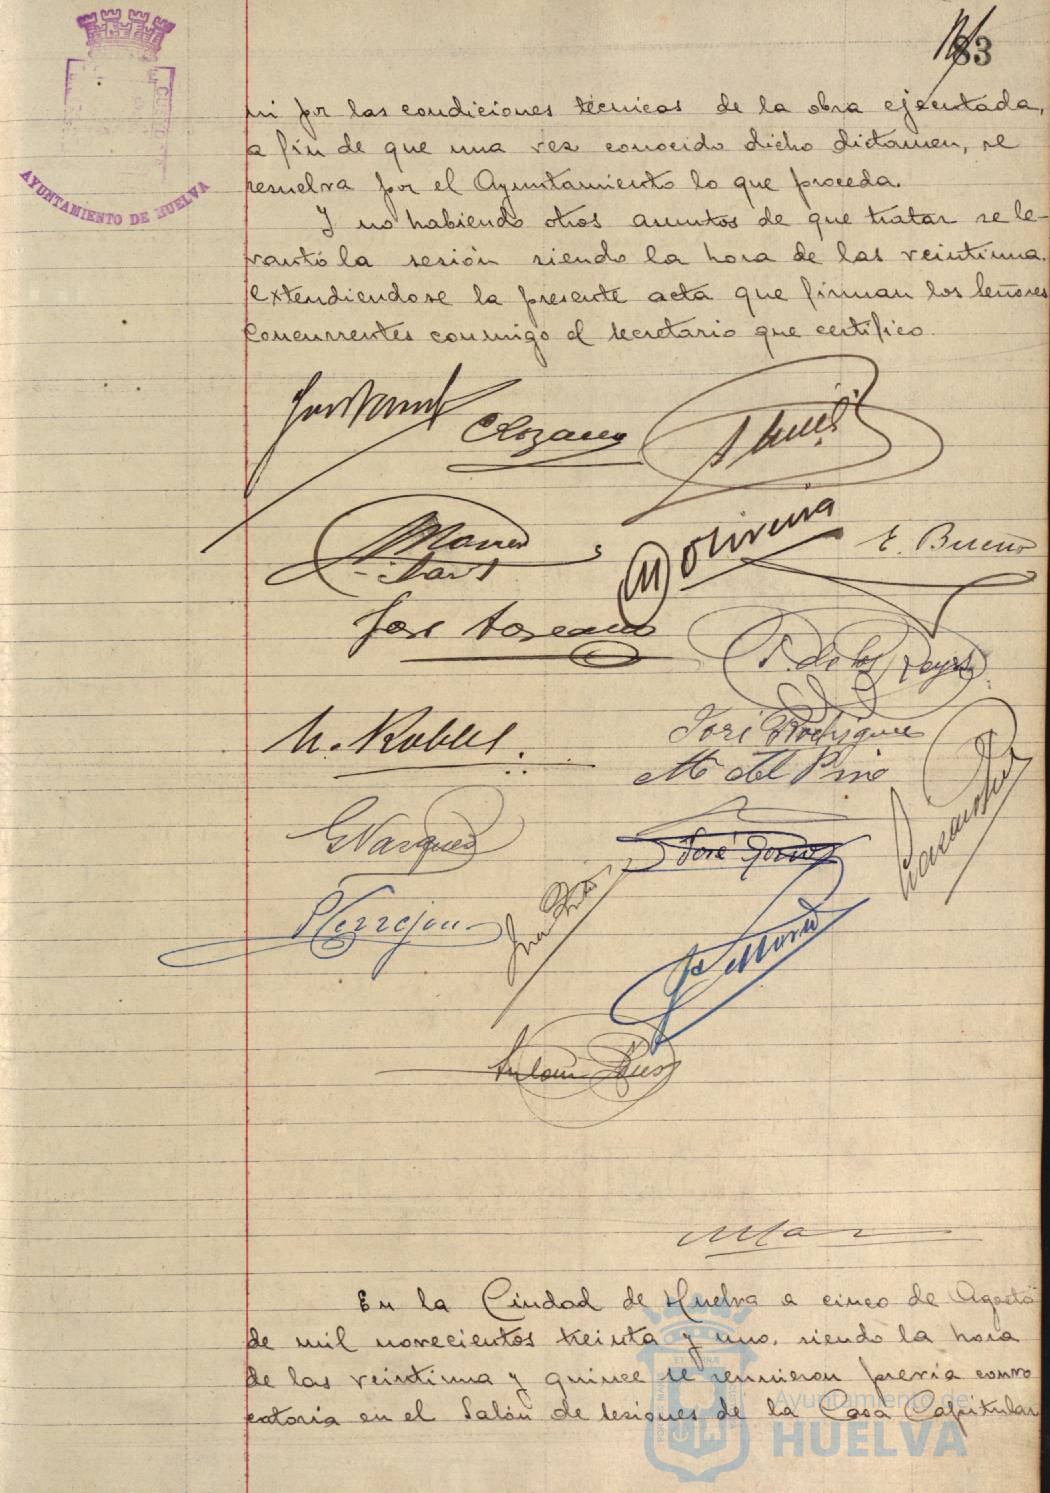 83
AYUNTAMIENTO DE HUELVA
ni por las condiciones técnicas de la obra ejecutada,
a fin de que una vez conocido dicho dictamen, se
resuelva por el Ayuntamiento lo que proceda.
Y no habiendo otros asuntos de que tratar se le-
vantó la sesión siendo la hora de las veintiuna.
extendiendose la presente acta que firman los Señores
Concurrentes conmigo el secretario que certifico.
M Oliveira
E. Bueno
José
P. de los Reyes
José Rodriguez
M. Robles.
M. del Pino
G Vazquez
José
P Cerrejon
Antonio
En la Ciudad de Huelva a cinco de Agosto
de mil novecientos treinta y uno. siendo la hora
de las veintiuna y quince se reunieron previa convo
catoria en el Salón de sesiones de la Casa Capitular
Ayuntamiento de
HUELVA